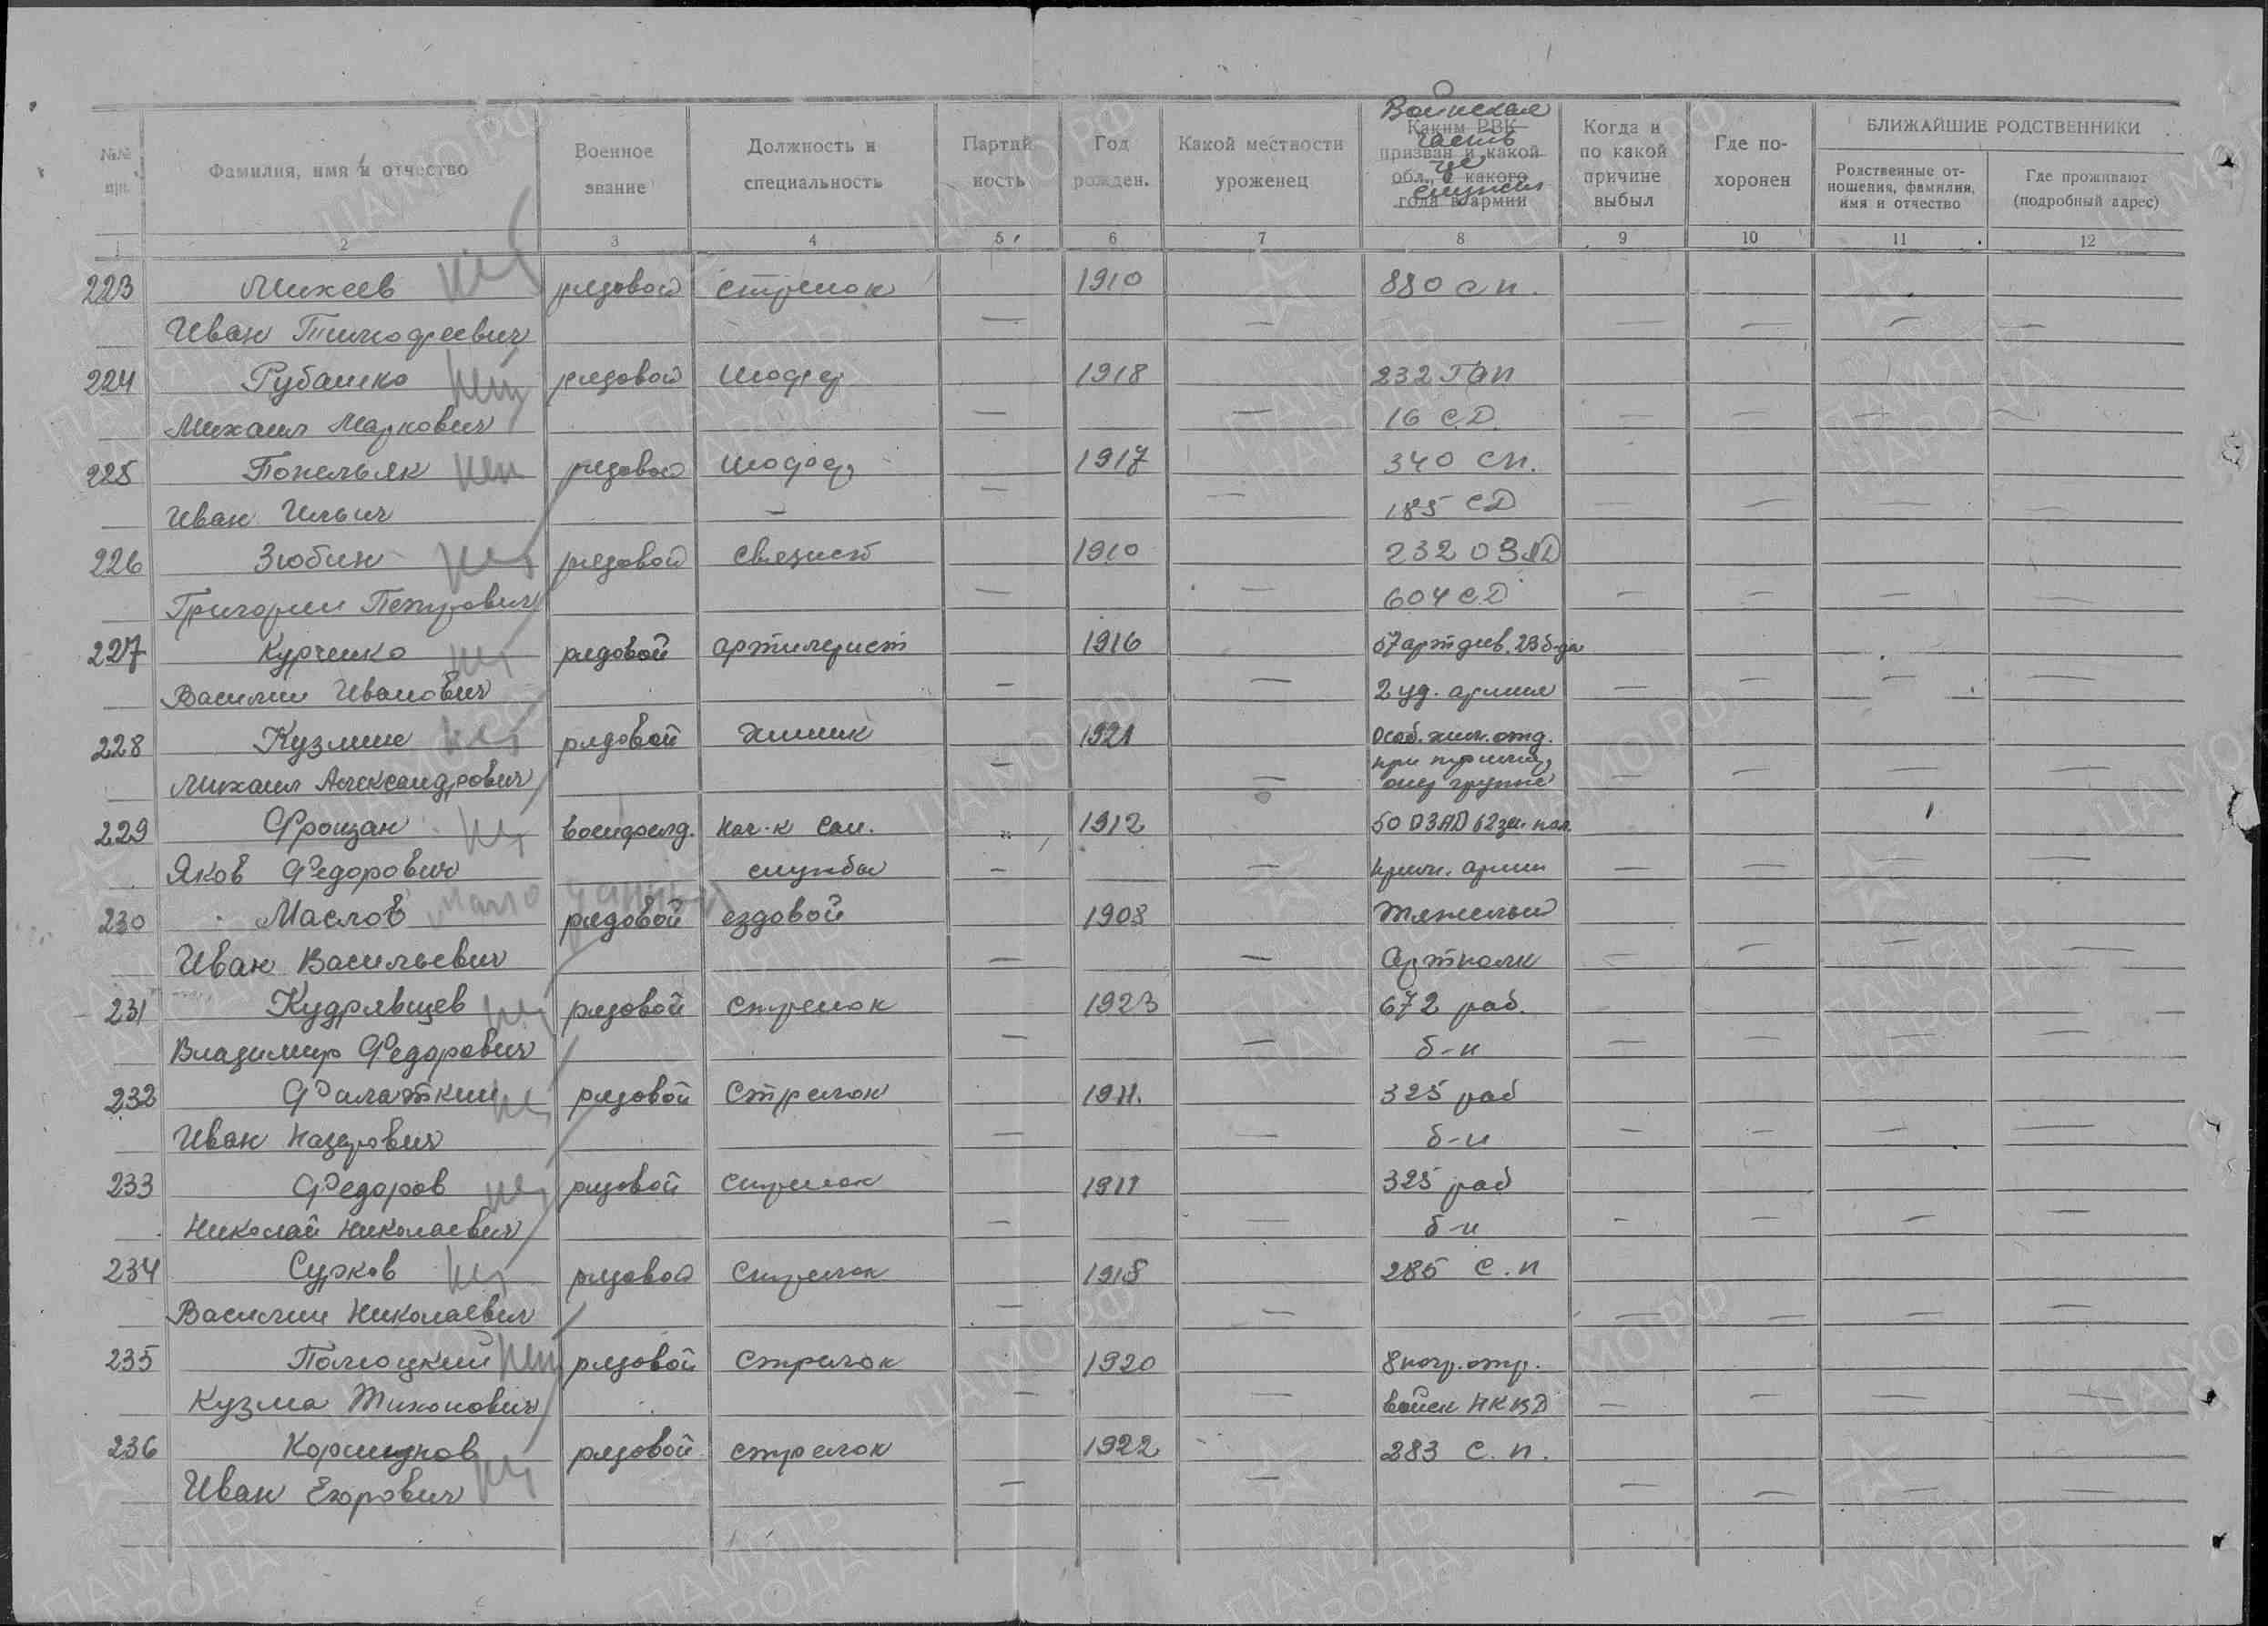 Воинская
часть
где
служил
№№ пп.
Фамилия, имя и отчество
Военное звание
Должность и специальность
Партийность
Год рожден.
Какой местности уроженец
Каким РВК призван и какой обл., с какого года в армии
Когда и по какой причине выбыл
Где похоронен
БЛИЖАЙШИЕ РОДСТВЕННИКИ
Родственные отношения, фамилия, имя и отчество
Где проживают (подробный адрес)
1 2 3 4 5 6 7 8 9 10 11 12
223 Михеев нет рядовой стрелок 1910 880 сп.
Иван Тимофеевич — — — — — —
224 Рубашко нет рядовой шофер 1918 232 ГАП
Михаил Маркович — — 16 С.Д. — — — —
225 Понельяк нет рядовой шофер 1917 340 сп.
Иван Ильич — — — 185 СД — — — —
226 Зюбин нет рядовой связист 1910 232 ОЗАД
Григории Петрович — — 604 С.Д — — — —
227 Курченко нет рядовой артилерист 1916 57 артдив. 23 б-да
Василии Иванович — — 2 уд. армия — — — —
228 Кузмин нет рядовой химик 1921 Особ. хим. отд.
при примор,
Михаил Александрович — — опер группе — — — —
229 Фрощан нет военфельд. Нач-к сан. 1912 50 ОЗАД 62 зен. пол.
Яков Федорович службы — — Прим. армии — — — —
230 Маслов мало данных рядовой ездовой 1908 Тяжелый
Иван Васильевич — — Артполк — — — —
231 Кудрявцев нет рядовой стрелок 1923 672 раб.
Владимир Федорович — — б-н — — — —
232 Фалаткин нет рядовой Стрелок 1911. 325 раб
Иван Назарович — — б-н — — — —
233 Федоров нет рядовой Стрелок 1911 325 раб
Николай Николаевич — — б-н — — — —
234 Сурков нет рядовой Стрелок 1918 285 с.п
Василии Николаевич — — — — — —
235 Полюцкий нет рядовой Стрелок 1920 8 погр. отр.
Кузма Тихонович — — войск НКВД — — — —
236 Коршунов нет рядовой стрелок 1922 283 с. п.
Иван Егорович — — — — — —